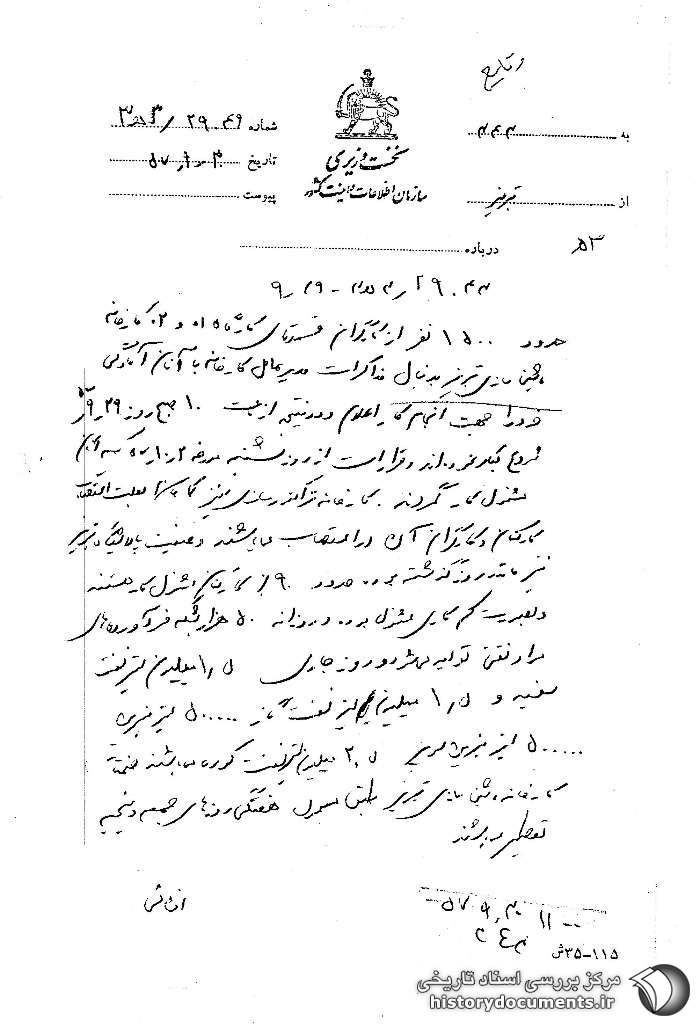 وقایع
به ۳۴۲
شماره ۲۹۰۴۹ / ۳
نخست وزیری
تاریخ
سازمان اطلاعات و امنیت کشور
از تبریز
پیوست
درباره
حدود ۱۵۰۰ نفر از کارگران قسمتهای کارگاه ۱ و ۲ کارخانه
ماشین سازی تبریز بدنبال مذاکرات مدیرعامل کارخانه با آنان آمادگی
خود را جهت انجام کار اعلام و در نتیجه از ساعت ۱۰ صبح روز
شروع بکار نموده‌اند و قرار است از روز شنبه مورخه
مشغول کار گردند. کارخانه تراکتورسازی نیز کماکان بعلت اعتصاب
کارکنان و کارگران آن در اعتصاب میباشند وضعیت پالایشگاه تبریز
نیز مانند روز گذشته بوده حدود ۹۰٪ کارکنان مشغول کار هستند
و بصورت کم کاری مشغول بوده و روزانه ۵۰ هزار بشکه فرآورده‌های
مواد نفتی تولید میشود و روز جاری ۱٫۵ میلیون لیتر نفت
سفید و ۱٫۵ میلیون لیتر نفت گاز ۵۰۰۰۰۰ لیتر بنزین
۵۰۰۰۰ لیتر بنزین سوپر ۲٫۵ میلیون لیتر نفت کوره میباشند ضمناً
کارخانه ماشین سازی تبریز طبق معمول هفتگی روزهای جمعه و پنجشنبه
تعطیل میباشند
۱۱۵-۳۵ش
مرکز بررسی اسناد تاریخی
historydocuments.ir